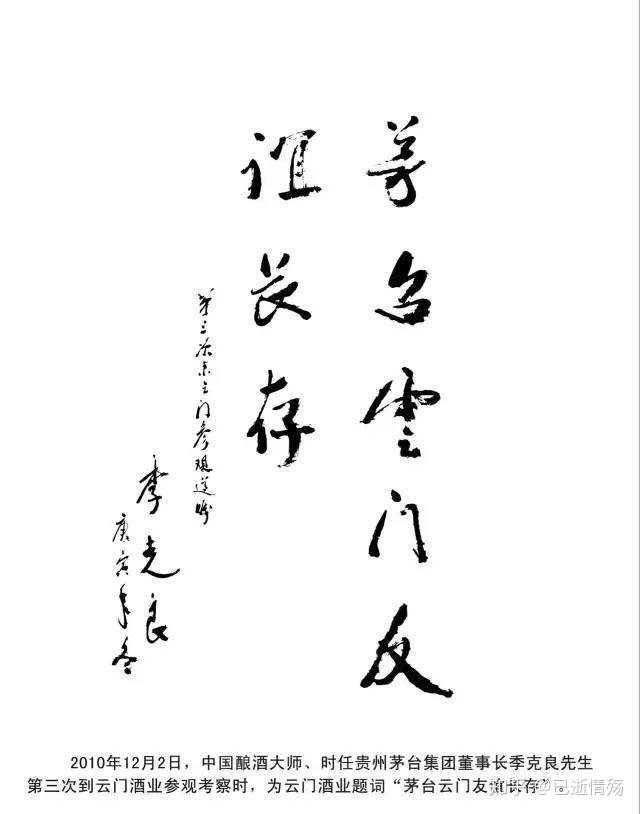 茅台雲门友
谊长存
第三次来云门参观遗憾
季克良
庚寅年冬
2010年12月2日，中国酿酒大师、时任贵州茅台集团董事长季克良先生
第三次到云门酒业参观考察时，为云门酒业题词“茅台云门友谊长存”。
知乎 @已逝情殇